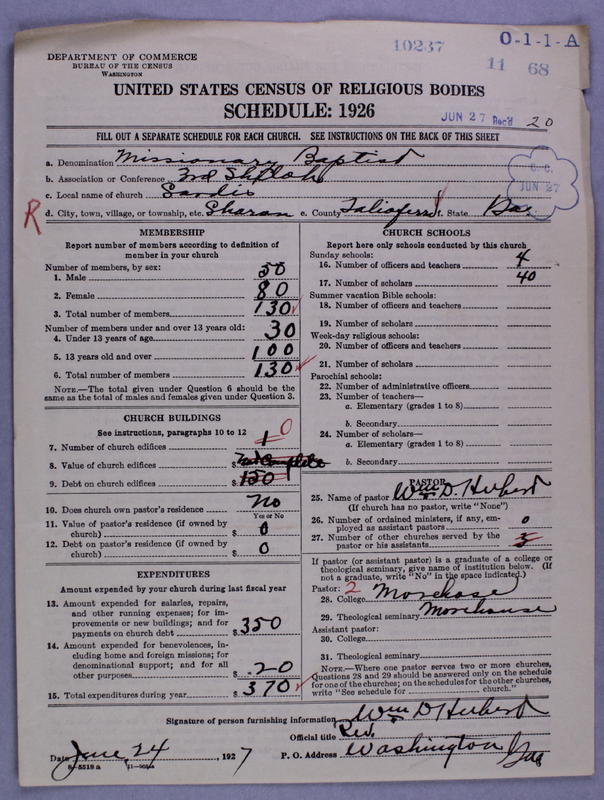 DEPARTMENT OF COMMERCE
BUREAU OF THE CENSUS
WASHINGTON
10237
O-1-1-A
11 68
UNITED STATES CENSUS OF RELIGIOUS BODIES
SCHEDULE: 1926
JUN 27 Rec'd 20
FILL OUT A SEPARATE SCHEDULE FOR EACH CHURCH. SEE INSTRUCTIONS ON THE BACK OF THIS SHEET
a. Denomination Missionary Baptist
b. Association or Conference 3rd Shiloh
JUN 27
c. Local name of church Sardis
R
d. City, town, village, or township, etc. Sharon e. County Taliaferro f. State Ga.
MEMBERSHIP
Report number of members according to definition of
member in your church
Number of members, by sex:
1. Male 50
2. Female 80
3. Total number of members 130
Number of members under and over 13 years old:
4. Under 13 years of age 30
5. 13 years old and over 100
6. Total number of members 130
NOTE.—The total given under Question 6 should be
the same as the total of males and females given under Question 3.
CHURCH BUILDINGS
See instructions, paragraphs 10 to 12
7. Number of church edifices 1 0
8. Value of church edifices $ Not Complete
9. Debt on church edifices $ 150
10. Does church own pastor's residence no
Yes or No
11. Value of pastor's residence (if owned by
church) $ 0
12. Debt on pastor's residence (if owned by
church) $ 0
EXPENDITURES
Amount expended by your church during last fiscal year
13. Amount expended for salaries, repairs,
and other running expenses; for im-
provements or new buildings; and for
payments on church debt $ 350
14. Amount expended for benevolences, in-
cluding home and foreign missions; for
denominational support; and for all
other purposes $ 20
15. Total expenditures during year $ 370
CHURCH SCHOOLS
Report here only schools conducted by this church
Sunday schools:
16. Number of officers and teachers 4
17. Number of scholars 40
Summer vacation Bible schools:
18. Number of officers and teachers
19. Number of scholars
Week-day religious schools:
20. Number of officers and teachers
21. Number of scholars
Parochial schools:
22. Number of administrative officers
23. Number of teachers—
a. Elementary (grades 1 to 8)
b. Secondary
24. Number of scholars—
a. Elementary (grades 1 to 8)
b. Secondary
PASTOR
25. Name of pastor Wm D. Hubert
(If church has no pastor, write "None")
26. Number of ordained ministers, if any, em-
ployed as assistant pastors 0
27. Number of other churches served by the
pastor or his assistants 3
If pastor (or assistant pastor) is a graduate of a college or
theological seminary, give name of institution below. (If
not a graduate, write "No" in the space indicated.)
Pastor: 2
28. College Morehouse
29. Theological seminary Morehouse
Assistant pastor:
30. College
31. Theological seminary
NOTE.—Where one pastor serves two or more churches,
Questions 28 and 29 should be answered only on the schedule
for one of the churches; on the schedules for the other churches,
write "See schedule for church."
Signature of person furnishing information Wm D Hubert
Official title Rev.
Date June 24, 1927 P. O. Address Washington Ga
8—5518 a